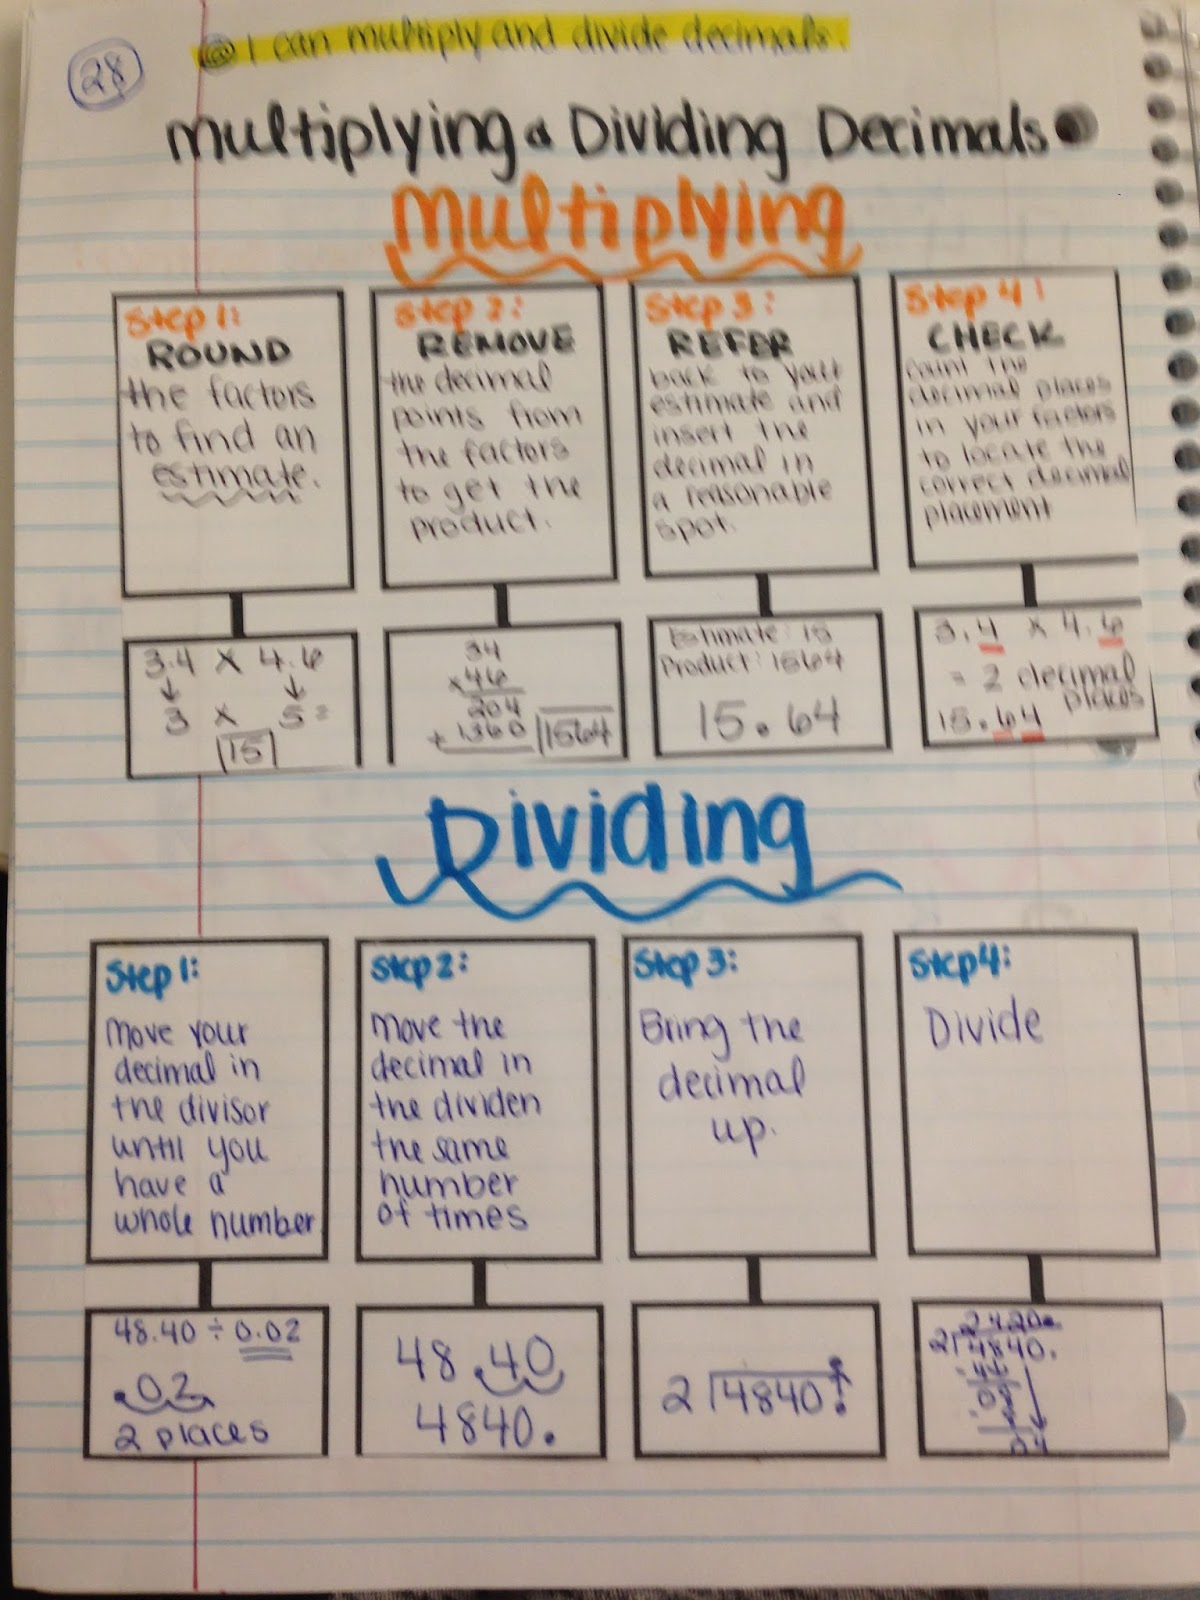 28
I can multiply and divide decimals.
Multiplying & Dividing Decimals
Multiplying
Step 1:
ROUND
the factors
to find an
estimate.
3.4 x 4.6
3 x 5 =
15
Step 2:
REMOVE
the decimal
points from
the factors
to get the
product.
34
x46
204
+ 1360
1564
Step 3:
REFER
back to your
estimate and
insert the
decimal in
a reasonable
spot.
Estimate: 15
Product: 1564
15.64
Step 4:
CHECK
count the
decimal places
in your factors
to locate the
correct decimal
placement
3.4 x 4.6
= 2 decimal
places
15.64
Dividing
Step 1:
Move your
decimal in
the divisor
until you
have a
whole number
48.40 ÷ 0.02
.02
2 places
Step 2:
Move the
decimal in
the dividen
the same
number
of times
48.40
4840.
Step 3:
Bring the
decimal
up.
2 4840.
Step 4:
Divide
2420.
2 4840.
04